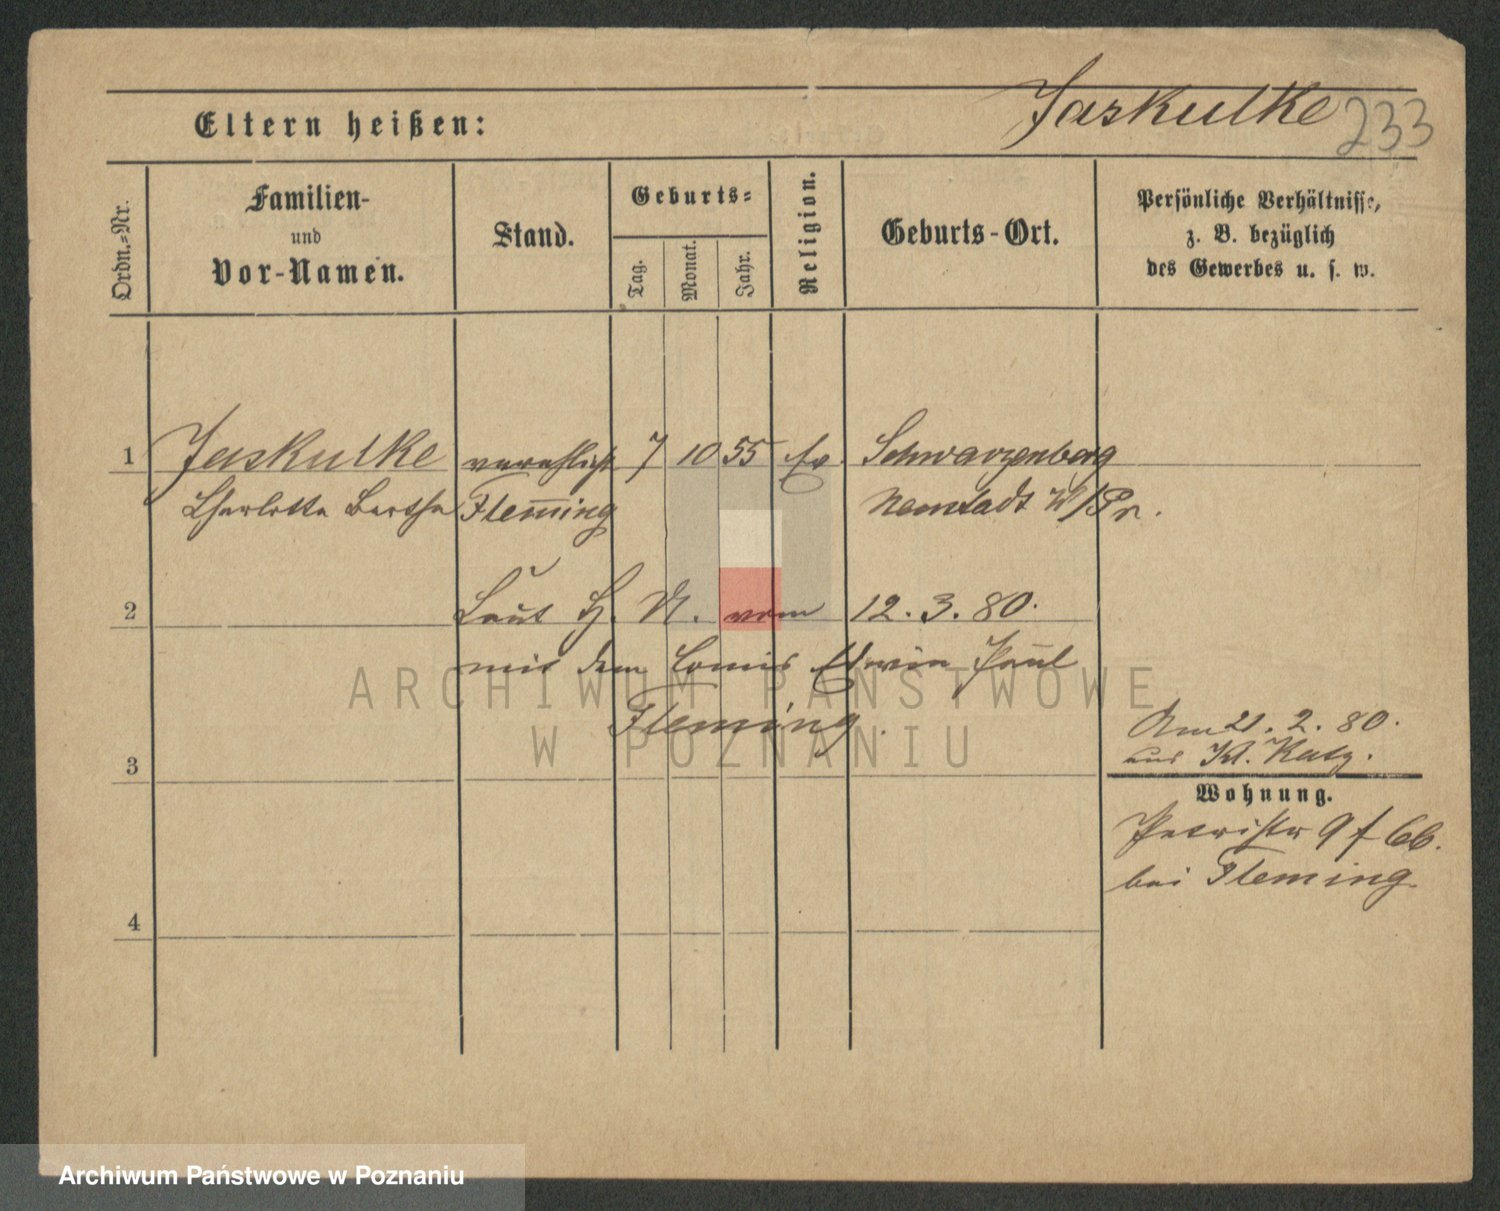 Jaskulke 233
Eltern heißen:
Ordn.=Nr.
Familien-
und
Vor-Namen.
Stand.
Geburts=
Tag.
Monat.
Jahr.
Religion.
Geburts-Ort.
Persönliche Verhältnisse,
z. B. bezüglich
des Gewerbes u. s. w.
1 Jaskulke verehlicht 7 10 55 Ev. Schwarzenberg
Charlotte Bertha Fleming Neustadt W/Pr.
2 Laut H. N. vom 12. 3. 80.
mit dem Louis Edwin Paul
Fleming.
Am 21. 2. 80.
aus Kl. Katz.
3
Wohnung.
Petristr 9 f
bei Fleming.
4
ARCHIWUM PAŃSTWOWE
W POZNANIU
Archiwum Państwowe w Poznaniu